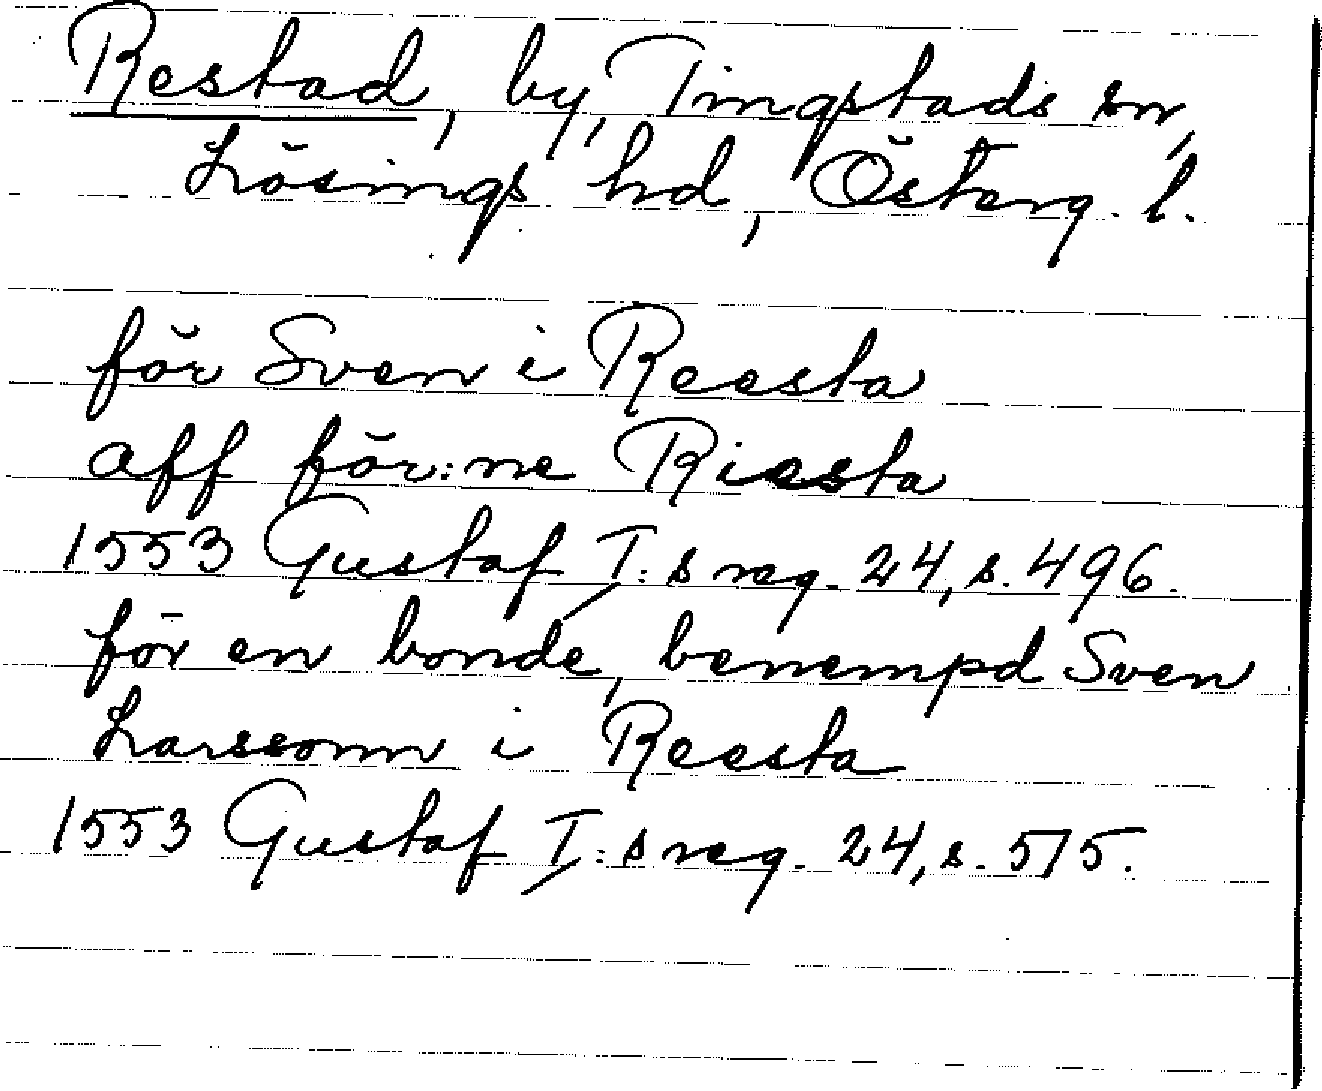 Restad, by, Tingstads sn,
Lösings hd, Österg. l.
för Sven i Reesta
aff för:ne Riesta
1553 Gustaf I:s reg. 24, s. 496.
för en bonde, benempd Sven
Larssonn i Reesta
1553 Gustaf I:s reg. 24, s. 515.